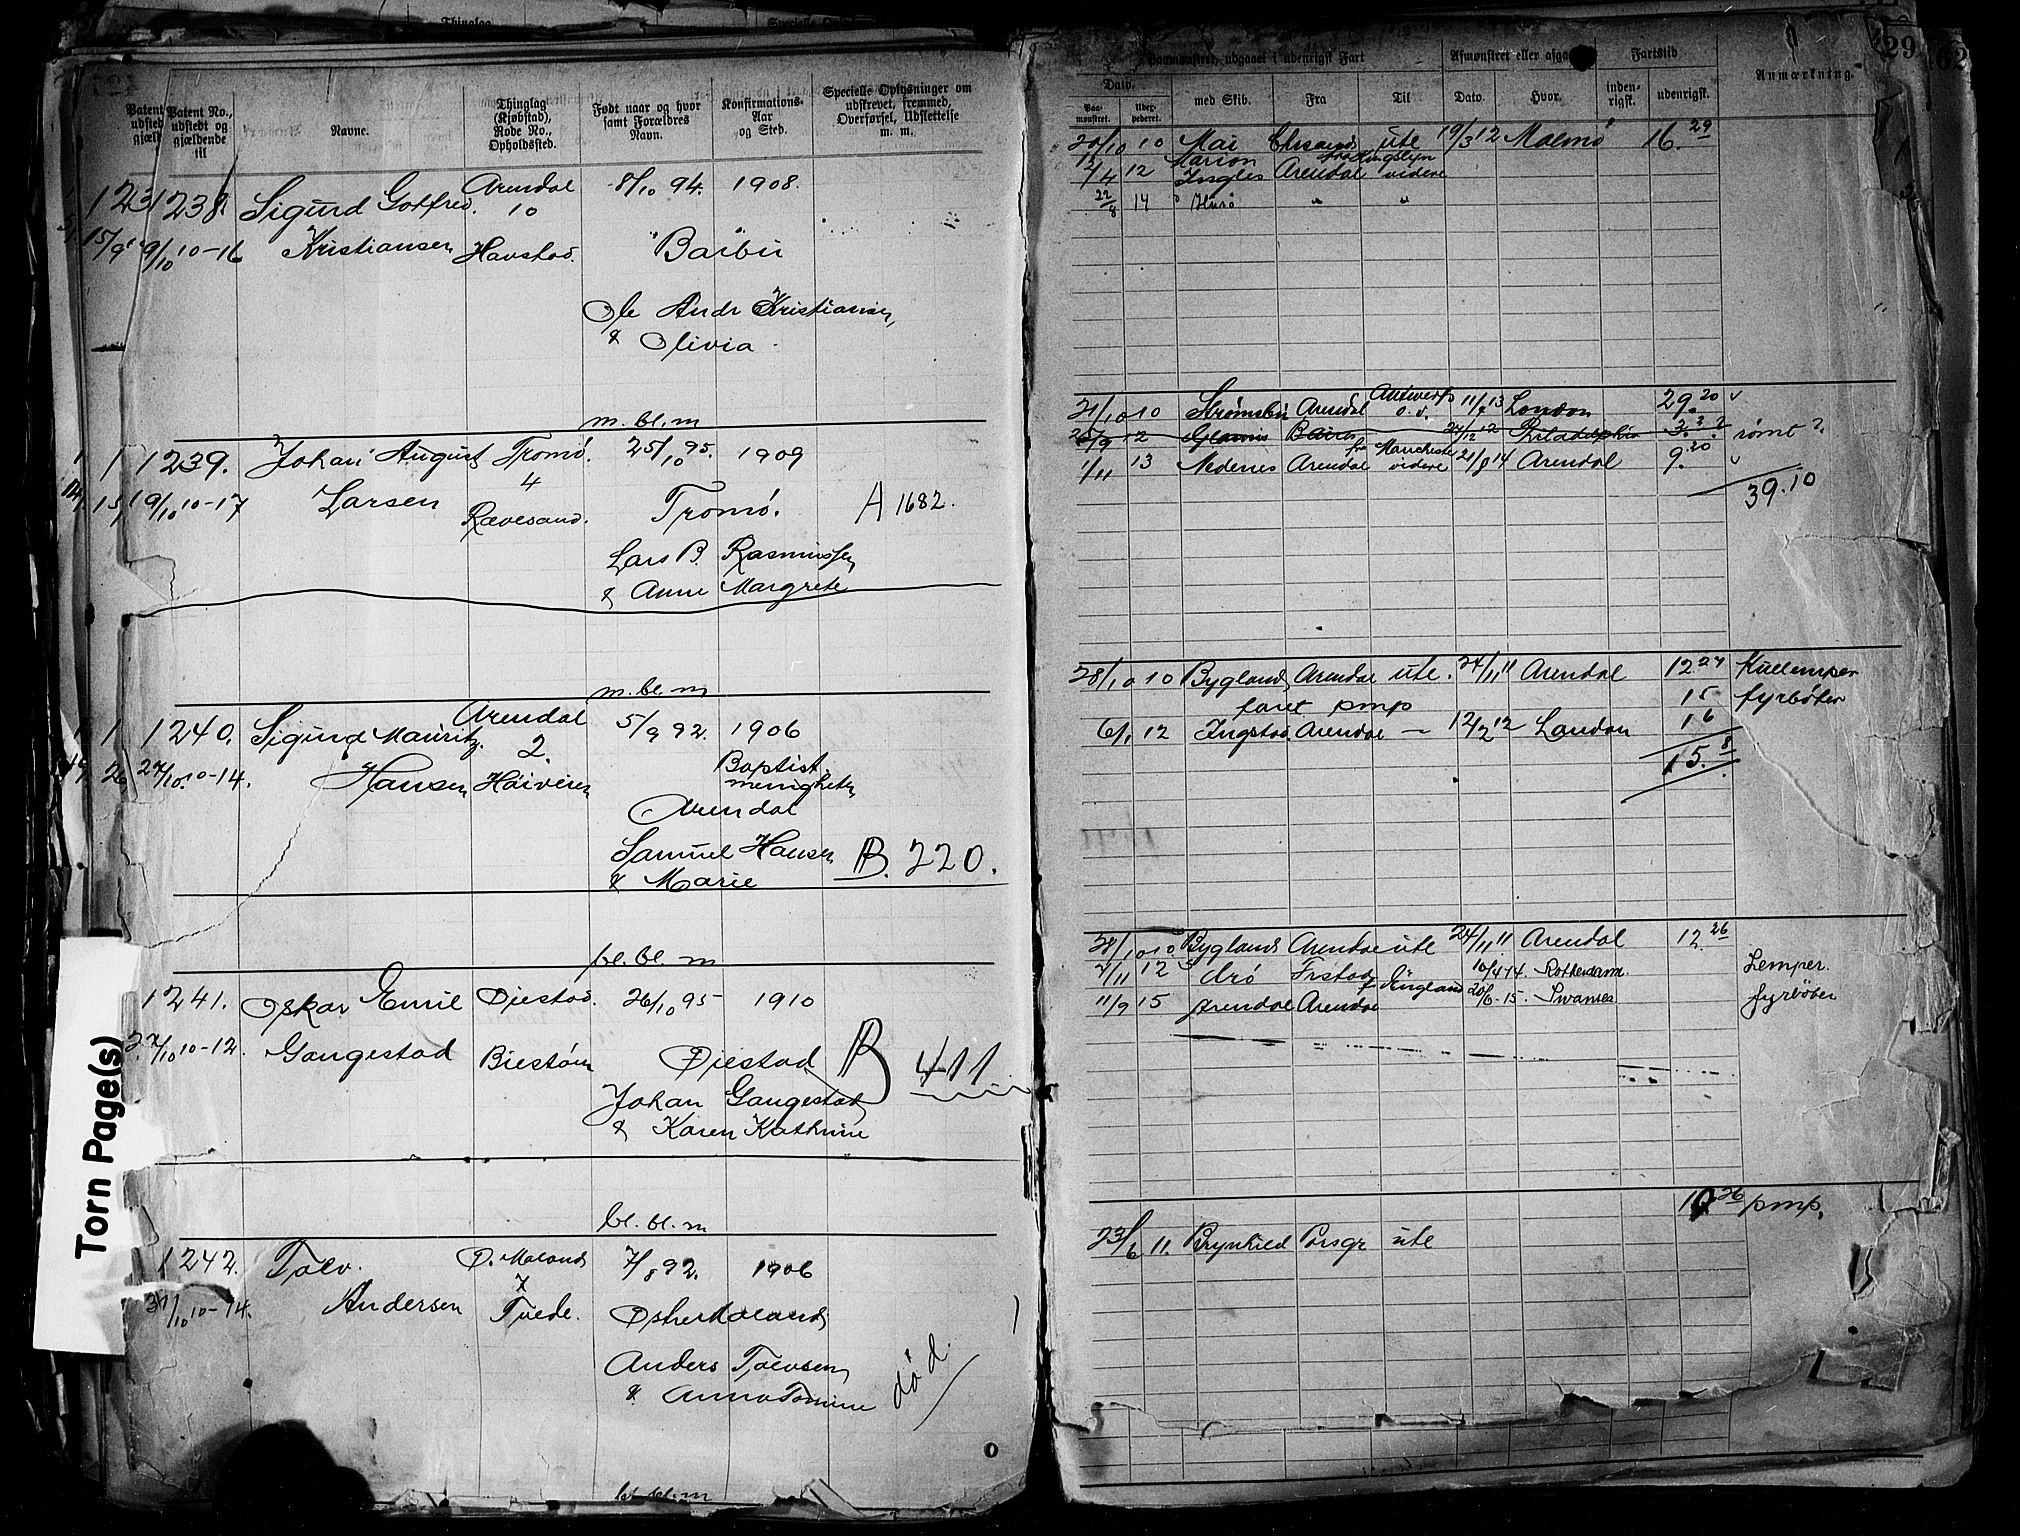 Patent No., udstedt og gjældende til
Navne.
Thinglag (Kjøbstad), Rode No., Opholdssted.
Født naar og hvor samt Forældres Navn.
Konfirmations-Aar og Sted.
Specielle Oplysninger om udskrevet, fremmed, Overførsel, Udslettelse m. m.
1238. Sigurd Gotfred Arendal 8/10 94. 1908.
10
9/10 10-16 Kristiansen Havstad. Barbu
Ole Andr Kristiansen
& Olivia
m. bl. m
1239. Johan August Tromø. 25/10 95. 1909
4
19/10 10-17 Larsen Rævesand. Tromø. A 1682.
Lars B. Rasmussen
& Anne Margrete
m. bl. m
1240. Sigurd Mauritz Arendal 5/9 92. 1906
2.
27/10 10-14. Hansen Høiveien Baptist menigheten
Arendal
Samuel Hansen B. 220.
& Marie
bl. bl. m
1241. Oskar Emil Øiestad. 26/10 95 1910
27/10 10-12. Gangestad Biestøen Øiestad B 411
Johan Gangestad
& Karen Kathrine
bl. bl. m
1242. Tolv. Ø. Moland 7/8 92. 1906
7
31/10 10-14. Andersen Tvede. Østre Moland
Anders Tolvsen død.
& Anna Tomine
bl. bl. m
Torn Page(s)
29
62
Paamønstret, udgaaet i udenrigsk Fart
Afmønstret eller afgaa
Fartstid
Anmærkning.
Dato.
Paa-mønstret.
Uder-pederet.
med Skib.
Fra
Til
Dato.
Hvor.
inden-rigsk.
udenrigsk.
20/10 10 Mai Chrsand ute 19/3 12 Malmø 16. 29
12/4 12 Marion Ingles Arendal videre
22/8 14 " " "
21/10 10 Strømsbu Arendal Antwerp o. v. 11/4 13 London 29. 20 v
26/9 12 Glamis 24/12 12 Philadelphia 3. rømt ?
1/11 13 Nedenes Arendal fra Manchester videre 21/8 14 Arendal 9. 20 v
39.10
28/10 10 Bygland Arendal ute. 24/11 11 Arendal 12 27 Kullemper
faret pmp 15 fyrbøter
6/1 12 Ingstad Arendal — 12/2 12 London 16
15. 8
28/10 10 Bygland Arendal ute 24/11 11 Arendal 12 26
7/11 12 Arø Frstad f England 10/4 14. Rotterdam. Lemper.
11/9 15 Arendal Arendal 20/6-15. Swansea fyrbøter
10 26 pmp.
23/6 11. Brynhild Porsgr ute